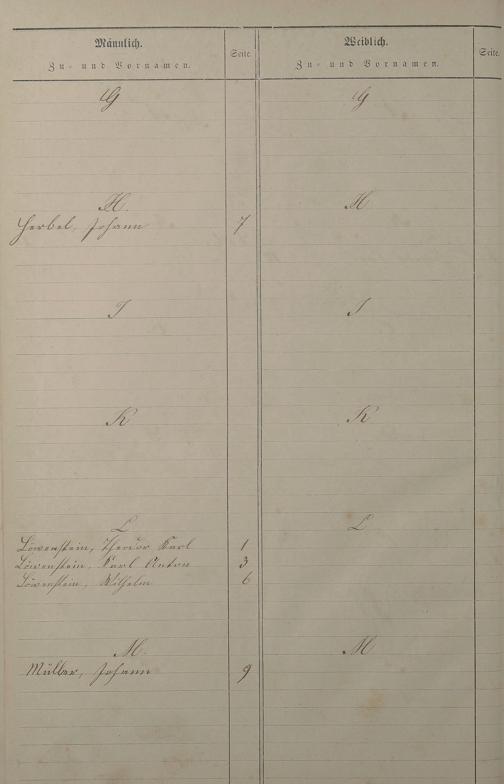 Männlich. Seite. Weiblich. Seite.
Zu- und Vornamen. Zu- und Vornamen.
G G
H. H
Herbel, Johann 7
J J
K K
L L
Löwenstein, Theodor Karl 1
Löwenstein, Karl Anton 3
Löwenstein, Wilhelm 6
M. M
Müller, Johann 9